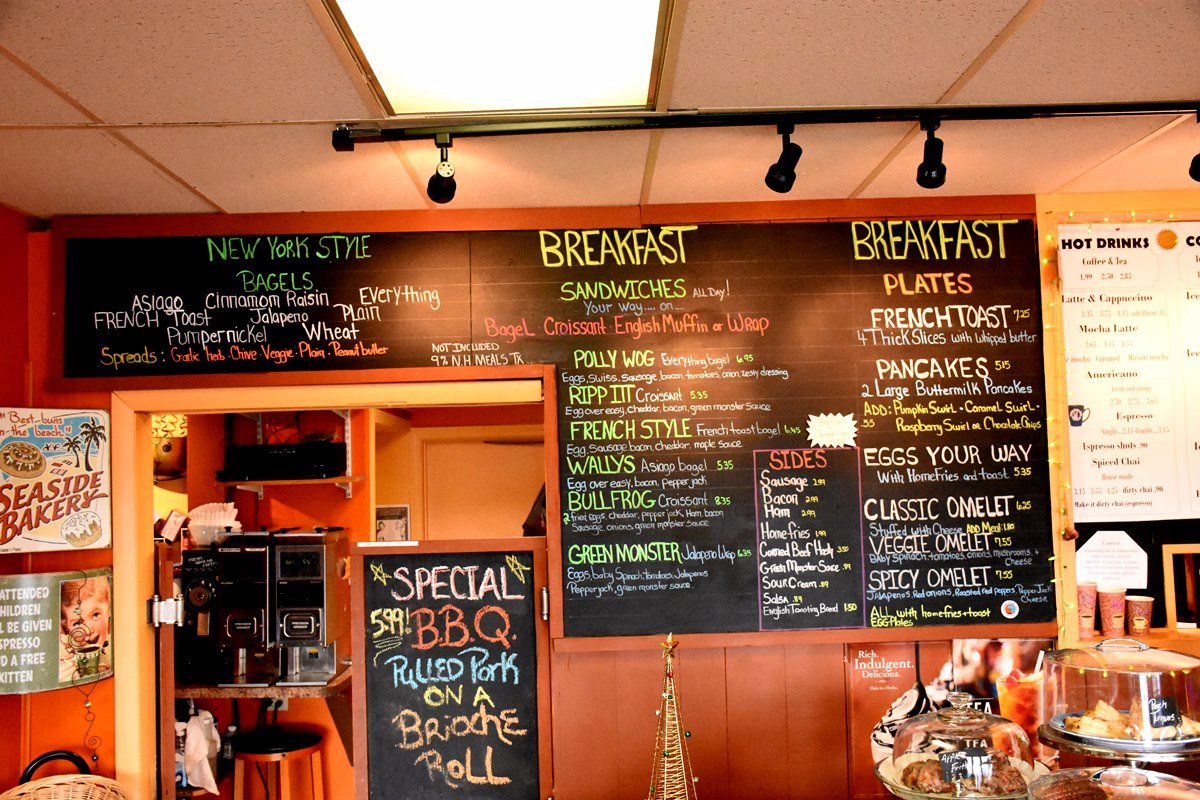 NEW YORK STYLE
BAGELS
Asiago Cinnamom Raisin Everything
FRENCH Toast Jalapeno Plain
Pumpernickel Wheat
Spreads: Garlic herb. Chive. Veggie. Plain. Peanut butter
NOT INCLUDED
9% N.H MEALS TX...
BREAKFAST
SANDWICHES ALL DAY!
Your way.... on....
Bagel Croissant English Muffin or Wrap
POLLY WOG Everything bagel 6.95
Eggs, Swiss, Sausage, bacon, tomatoes, onion, zesty dressing
RIPP ITT Croissant 5.35
Egg over easy, cheddar, bacon, green monster sauce
FRENCH STYLE French toast bagel 6.45
Egg, Sausage, bacon, cheddar, maple sauce
WALLYS Asiago bagel 5.35
Egg over easy, bacon, pepper jack
BULLFROG Croissant 8.35
2 fried eggs, cheddar, pepper jack, Ham, bacon
Sausage, onions, green monster sauce
GREEN MONSTER Jalapeno Wrap 6.35
Eggs, baby Spinach, tomatoes, Jalapenos
Pepper jack, green monster sauce.
SIDES
Sausage 2.99
Bacon 2.99
Ham 2.99
Homefries 1.99
Corned Beef Hash 3.50
Green Monster Sauce .89
Sour Cream .89
Salsa .89
English Toasting Bread 1.50
BREAKFAST
PLATES
FRENCH TOAST 7.25
4 Thick Slices with whipped butter
PANCAKES 5.15
2 Large Buttermilk Pancakes
ADD: Pumpkin Swirl - Caramel Swirl -
.55 Raspberry Swirl or Chocolate Chips
EGGS YOUR WAY
With Homefries and toast 5.35
CLASSIC OMELET 6.25
Stuffed with Cheese ADD Meat 1.80
VEGGIE OMELET 7.55
Baby Spinach, tomatoes, onions, mushrooms, +
Cheese
SPICY OMELET 7.55
Jalapenos, Red onions, Roasted red peppers, Pepper Jack
Cheese
ALL with homefries + toast
EGG Plates
HOT DRINKS
CO
Coffee & Tea
1.99 2.50 2.85
Latte & Cappuccino
3.35 3.75 4.15
Mocha Latte
3.65 4.15 4.55
Americano
Fresh and strong
2.50 2.75
Espresso
Single..2.15 double..
Espresso shots .90
Spiced Chai
House made
3.15 3.55 4.25 dirty chai .90
Make it dirty chai (espresso)
"Best-buns
on the beach"
SEASIDE
BAKERY
ATTENDED
CHILDREN
LL BE GIVEN
SPRESSO
ND A FREE
KITTEN
SPECIAL
5.99! B.B.Q.
Pulled Pork
ON A
Brioche
Roll
Caution
Rich.
Indulgent.
Delicious.
TEA
TEA